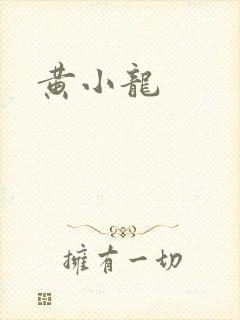 黄小龍
擁有一切